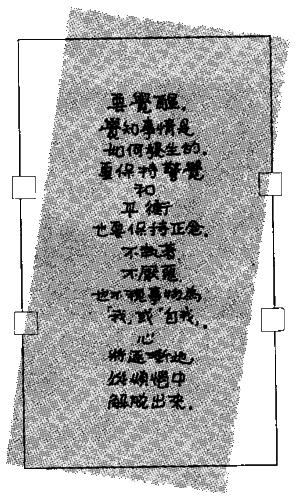 要覺醒.
覺知事情是
如何發生的.
要保持警覺
和
平衡
也要保持正念.
不執著
不厭惡
也不視事物為
「我」或「自我」.
心
將逐漸地
從煩惱中
解脫出來.